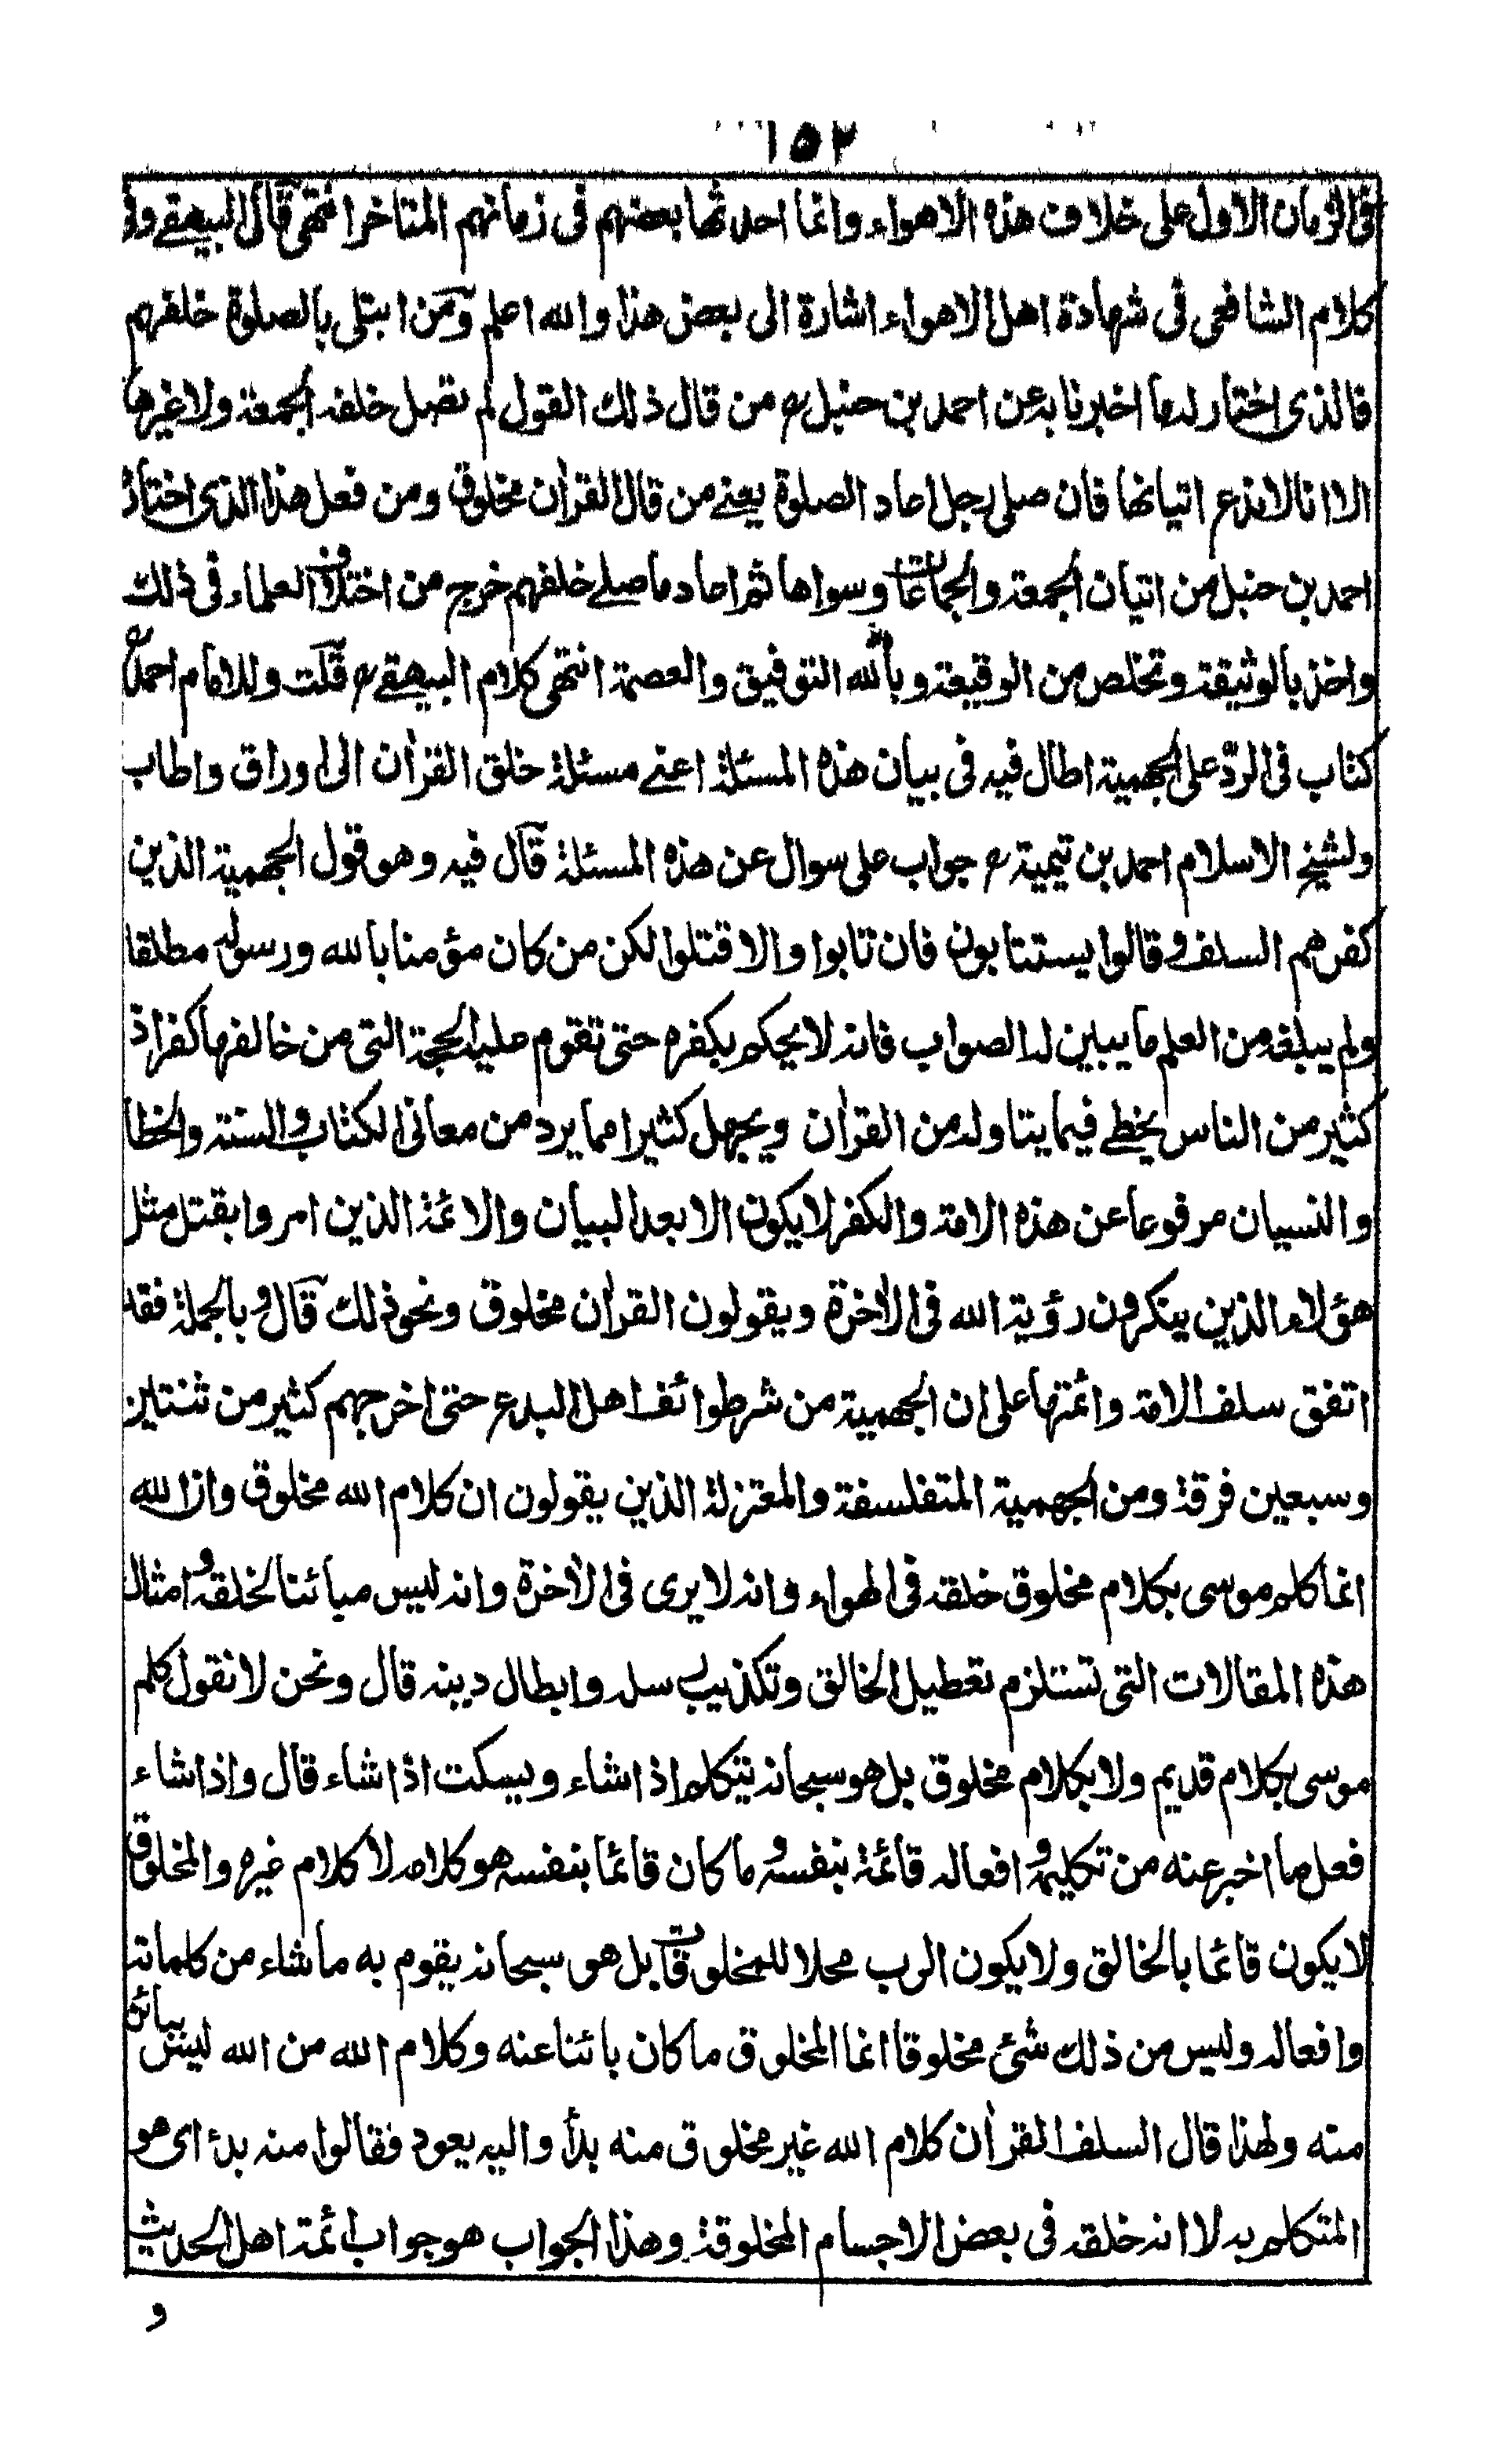 ١٥٢
في الزمان الاول على خلاف هذه الاهواء وانما احدثها بعضهم في زمانهم المتاخر انتهى قال البيهقي وفي
كلام الشافعي في شهادة اهل الاهواء اشارة الى بعض هذا والله اعلم ومن ابتلي بالصلوة خلفهم
فالذي اختار له ما اخبرنا به عن احمد بن حنبل رح من قال ذلك القول لم نصل خلفه الجمعة ولا غيرها
الا انا لا ندع اتيانها فان صلى رجل اعاد الصلوة يعني من قال القرآن مخلوق ومن فعل هذا الذي اختاره
احمد بن حنبل من اتيان الجمعة والجماعات وسواها ثم اعاد ما صلى خلفهم خرج من اختلاف العلماء في ذلك
واخذ بالوثيقة وتخلص من الوقيعة وبالله التوفيق والعصمة انتهى كلام البيهقي رح قلت وللامام احمد رح
كتاب في الردّ على الجهمية اطال فيه في بيان هذه المسئلة اعني مسئلة خلق القرآن الى اوراق واطاب
ولشيخ الاسلام احمد بن تيمية رح جواب على سوال عن هذه المسئلة قال فيه وهو قول الجهمية الذين
كفرهم السلف وقالوا يستتابون فان تابوا والا قتلوا لكن من كان مؤمنا بالله ورسوله مطلقا
ولم يبلغه من العلم ما يبين له الصواب فانه لا يحكم بكفره حتى تقوم عليه الحجة التي من خالفها كفر اذ
كثير من الناس يخطي فيما يتاوله من القرآن ويجهل كثيرا مما يرد من معاني الكتاب والسنة والخطا
والنسيان مرفوعا عن هذه الامة والكفر لا يكون الا بعد البيان والائمة الذين امروا بقتل مثل
هؤلاء الذين ينكرون رؤية الله في الآخرة ويقولون القرآن مخلوق ونحو ذلك قال وبالجملة فقد
اتفق سلف الامة وائمتها على ان الجهمية من شر طوائف اهل البدع حتى اخرجهم كثير من ثنتين
وسبعين فرقة ومن الجهمية المتفلسفة والمعتزلة الذين يقولون ان كلام الله مخلوق وان الله
انما كلم موسى بكلام مخلوق خلقه في الهواء وانه لا يرى في الآخرة وانه ليس مبائنا لخلقه وامثال
هذه المقالات التي تستلزم تعطيل الخالق وتكذيب رسله وابطال دينه قال ونحن لا نقول كلم
موسى بكلام قديم ولا بكلام مخلوق بل هو سبحانه يتكلم اذا شاء ويسكت اذا شاء قال واذا شاء
فعل ما اخبر عنه من تكليمه وافعاله قائمة بنفسه وما كان قائما بنفسه هو كلامه لا كلام غيره والمخلوق
لا يكون قائما بالخالق ولا يكون الرب محلا للمخلوقات بل هو سبحانه يقوم به ما شاء من كلماته
وافعاله وليس من ذلك شئ مخلوقا انما المخلوق ما كان بائنا عنه وكلام الله من الله ليس ببائن
منه ولهذا قال السلف القرآن كلام الله غير مخلوق منه بدأ واليه يعود فقالوا منه بدئ اى هو
المتكلم به لا انه خلقه في بعض الاجسام المخلوقة وهذا الجواب هو جواب ائمة اهل الحديث
و